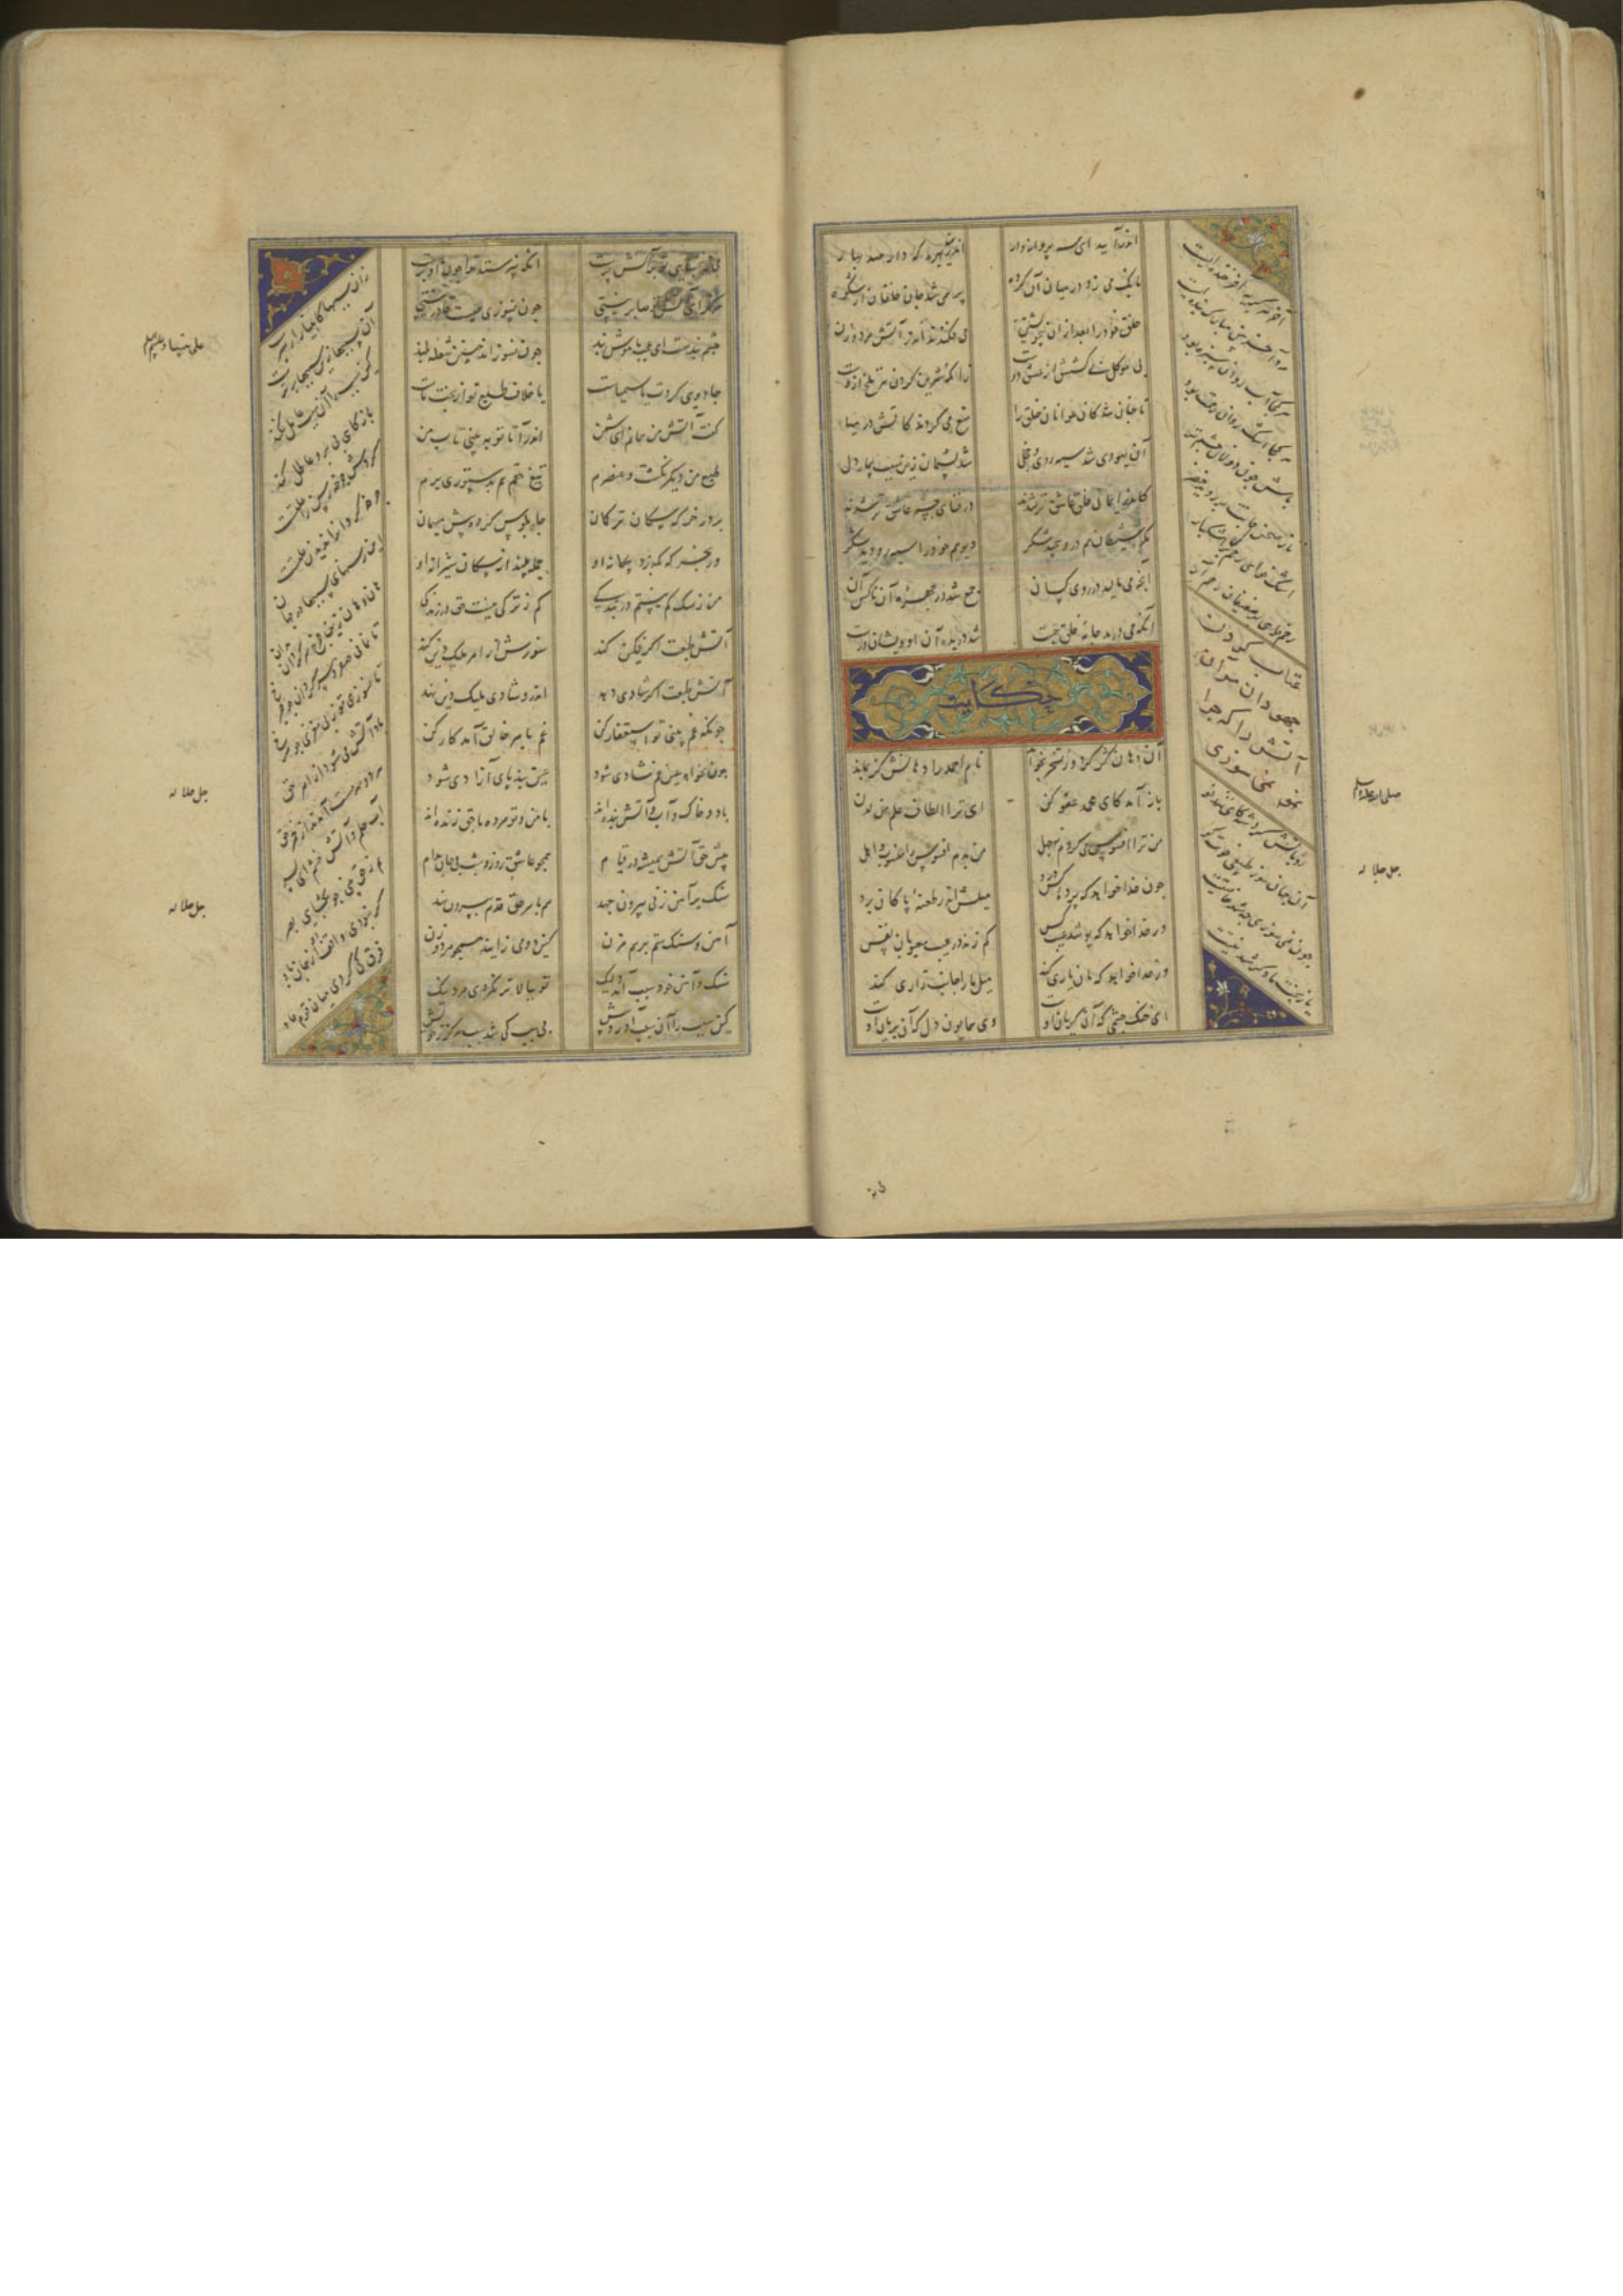 اندرآیید ای همه پروانه وار اندرین بهره که دارد صد بهار
بانک می زد در میان آن کروه پر همی شد جان خلقان از شکوه
خلق خود را بعد از آن بی خویشتن می فکندند اندر آتش مرد و زن
بی موکل بی کشش از عشق دوست زانکه شیرین کردن هر تلخ ازوست
تا چنان شد کان عوانان خلق را منع می کردند کاتش در میا
آن یهودی شد سیه روی و خجل شد پشیمان زین سبب بیمار دل
کاندر ایمان خلق عاشق تر شدند در فنای جسم عاشق تر شدند
مکر شیطان هم درو پیچید شکر دیو هم خود را سیه رو دید شکر
آنچه می مالید در روی کسان جمع شد در چهره آن ناکس آن
آنکه می درید جامه خلق چست شد دریده آن او ایشان درست
حکایت
آن دهان کژ کرد و از تسخر بخواند نام احمد را دهانش کژ بماند
باز آمد کای محمد عفو کن ای ترا الطاف علم من لدن
من ترا افسوس می کردم ز جهل من بدم افسوس را منسوب و اهل
چون خدا خواهد که پرده کس درد میلش اندر طعنه پاکان برد
ور خدا خواهد که پوشد عیب کس کم زند در عیب معیوبان نفس
ور خدا خواهد که مان یاری کند میل ما را جانب زاری کند
ای خنک چشمی که آن کریان اوست وی همایون دل که آن بریان اوست
آخر هر کریه آخر خنده ایست
مرد آخر بین مبارک بنده ایست
هر کجا آب روان سبزه بود
هر کجا اشک روان رحمت بود
باش چون دولاب نالان چشم تر
تا ز صحن جانت بر روید خضر
اشک خواهی رحم کن بر اشکبار
رحم خواهی بر ضعیفان رحم آر
عتاب کردن
جهودان مر آن
آتش را که چرا
نمی سوزی
رو بآتش کرد شه کای تندخو
آن جهان سوز طبیعی خوت کو
چون نمی سوزی چه شد خاصیتت
یا ز بخت ما دکر شد نیتت
صلی الله علیه وسلم
جل جلاله
می نبخشایی تو بر آتش پرست انکه نپرستد ترا چون او برست
هرکز ای آتش تو صابر نیستی چون نسوزی چیست قادر نیستی
چشم بندست ای عجب یا هوش بند چون نسوزاند چنین شعله بلند
جادویی کردت یا سیمیاست یا خلاف طبع تو از بخت ماست
کفت آتش من همانم ای شمن اندر آ تا تو ببینی تاب من
طبع من دیکر نکشت و عنصرم تیغ حقم هم بدستوری برم
بر در خرکه سکان ترکمان چاپلوسی کرده پیش میهمان
ور بخرکه بکذرد بیکانه او حمله بیند از سکان شیرانه او
من ز سک کم نیستم در بندکی کم ز ترکی نیست حق در زندکی
آتش طبعت اکر غمکین کند سوزش از امر ملیک دین کند
آتش طبعت اکر شادی دهد اندرو شادی ملیک دین نهد
چونکه غم بینی تو استغفار کن غم بامر خالق آمد کار کن
چون بخواهد عین غم شادی شود عین بند پای آزادی شود
باد و خاک و آب و آتش بنده اند با من و تو مرده با حق زنده اند
پیش حق آتش همیشه در قیام همچو عاشق روز و شب بی جان مدام
سنک بر آهن زنی بیرون جهد هم بامر حق قدم بیرون نهد
آهن و سنک ستم بر هم مزن کین دو می زایند همچو مرد و زن
سنک و آهن خود سبب آمد ولیک تو ببالاتر نکر ای مرد نیک
کین سبب را آن سبب آورد پیش بی سبب کی شد سبب هرکز ز خویش
زان سببها کانبیا را رهبرست
آن سببها زین سببها برترست
این سبب را آن سبب عامل کند
باز کاهی بی بر و عاطل کند
کردش چرخه رسن را علتست
چرخه کردان را ندیدن زلتست
این رسنهای سببها در جهان
هان و هان زین چرخ سرکردان مدان
تا نمانی صفر و سرکردان چو چرخ
تا نسوزی تو ز بی مغزی چو مرخ
باد آتش می شود از امر حق
هر دو سرمست آمدند از خمر حق
آب حلم و آتش خشم ای پسر
هم ز حق بینی چو بکشایی بصر
کر نبودی واقف از حق جان باد
فرق کی کردی میان قوم عاد
جل جلاله
جل جلاله